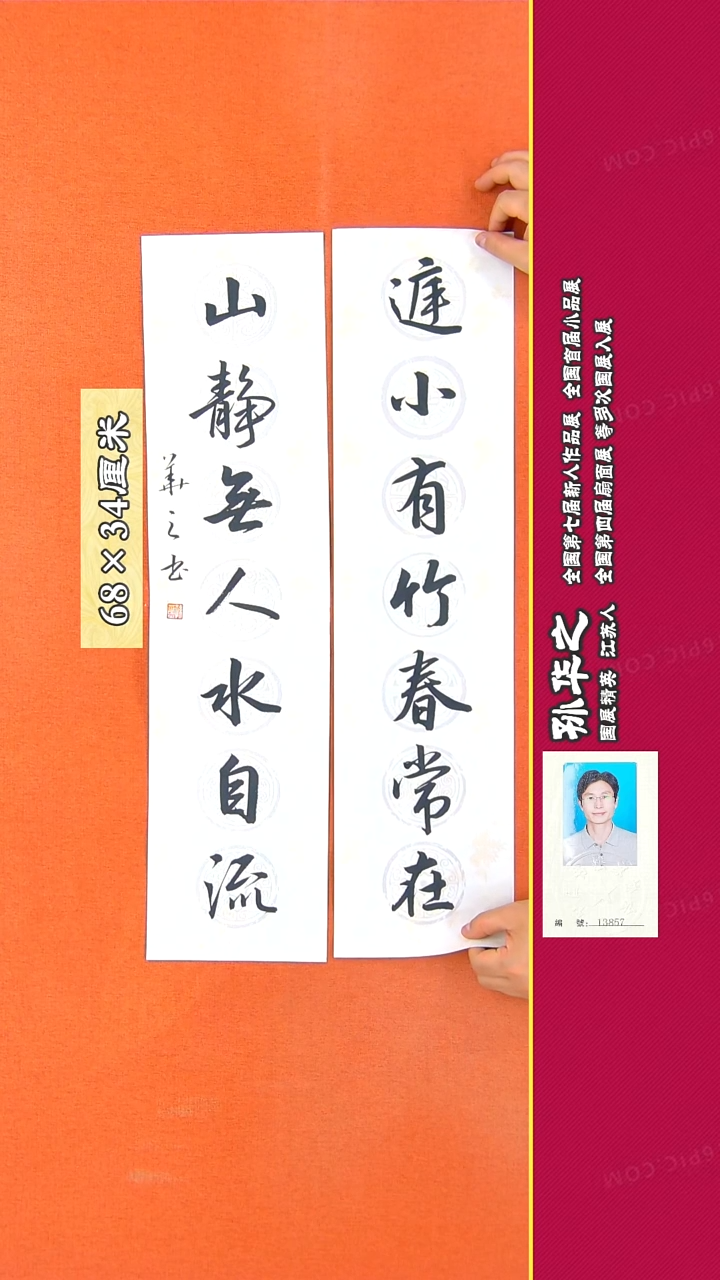 庭小有竹春常在
山静無人水自流
華之书
68×34厘米
孙华之
全國第七届新人作品展 全國首届小品展
國展精英 江苏人 全國第四届扇面展 等多次國展入展
編 號: 13857
6PIC.COM